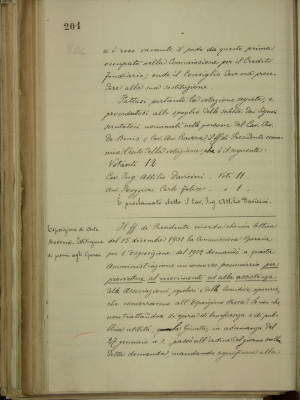 204
si è reso vacante il posto da questo prima
occupato nella Commissione per il Credito
fondiario; onde il Consiglio deve ora proce
dere alla sua sostituzione.
Fattasi pertanto la votazione segreta, e
procedutosi allo spoglio delle schede dai signori
scrutatori nominati nelle persone del Cav. Avv.
De Cav. Avv. il ff di Presidente comu
nica l'esito della votazione, che è il seguente
Votanti 12
Cav. Ing. Attilio Davicini, Voti 11.
Avv. Carlo Felice " 1.
È proclamato eletto il Cav. Ing. Attilio Davicini.
Esposizione di Arte
di premi agli Operai
Il ff di Presidente ricorda che con lettera
del 15 dicembre 1901 la Commissione Operaia
per l'Esposizione del 1902 domandò a questa
Amministrazione un concorso pecuniario per
provvedere al ricevimento ed alla assistenza
delle Associazioni popolari e delle comitive operaie,
che converranno all'Esposizione stessa. E ora che
non trattandosi di opera di beneficenza e di pub
blica utilità la Giunta, in adunanza del
27 gennaio u. s. passò all'ordine del giorno sulla
detta domanda, mandando significare alla